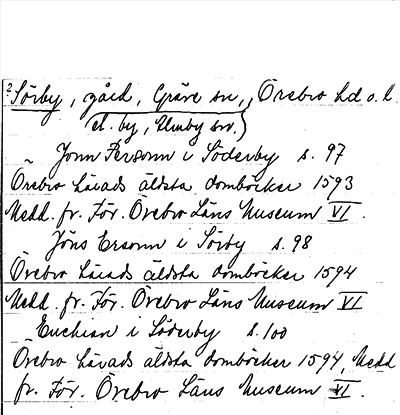 2 Sörby, gård, Gräve sn, Örebro hd o. l.
el. by, Ekeby sn.)
Jonn Personn i Söderby s. 97
Örebro härads äldsta domböcker 1593
Medd. fr. För. Örebro Läns Museum VI.
Jöns Ersonn i Sörby s. 98
Örebro härads äldsta domböcker 1594
Medd. fr. För. Örebro Läns Museum VI
i Söderby s. 100
Örebro härads äldsta domböcker 1594, Medd
fr. För. Örebro Läns Museum VI.